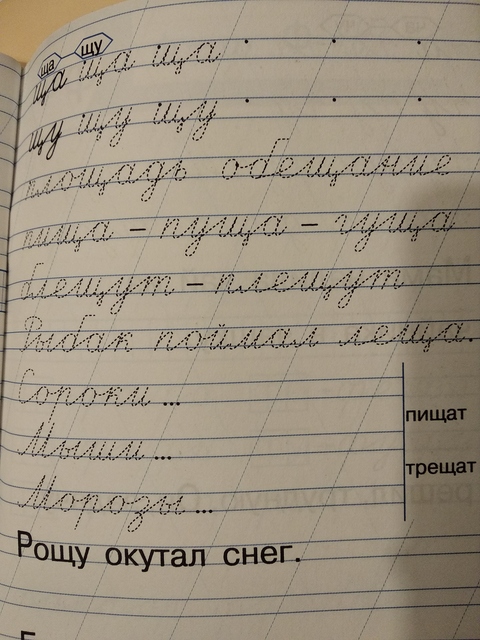 ща щу
ща ща ща
щу щу щу
площадь обещание
пища – пуща – гуща
блещут – плещут
Рыбак поймал леща.
Сороки ...
пищат
Мыши ...
трещат
Морозы ...
Рощу окутал снег.